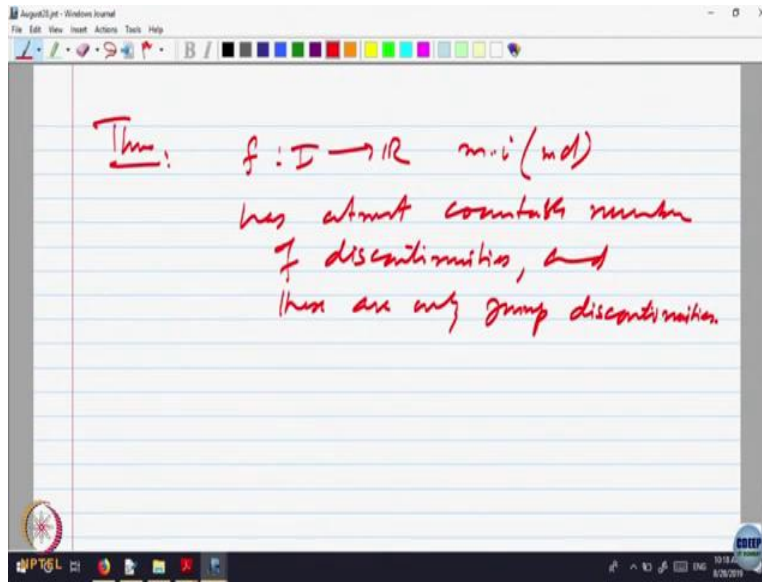 August28.jnt - Windows Journal
File Edit View Insert Actions Tools Help
B I
Thm: f : I → IR m.i (md)
has atmost countable number
of discontinuities, and
these are only jump discontinuities.
NPTEL
CDEEP
ENG
10:18
8/28/2019